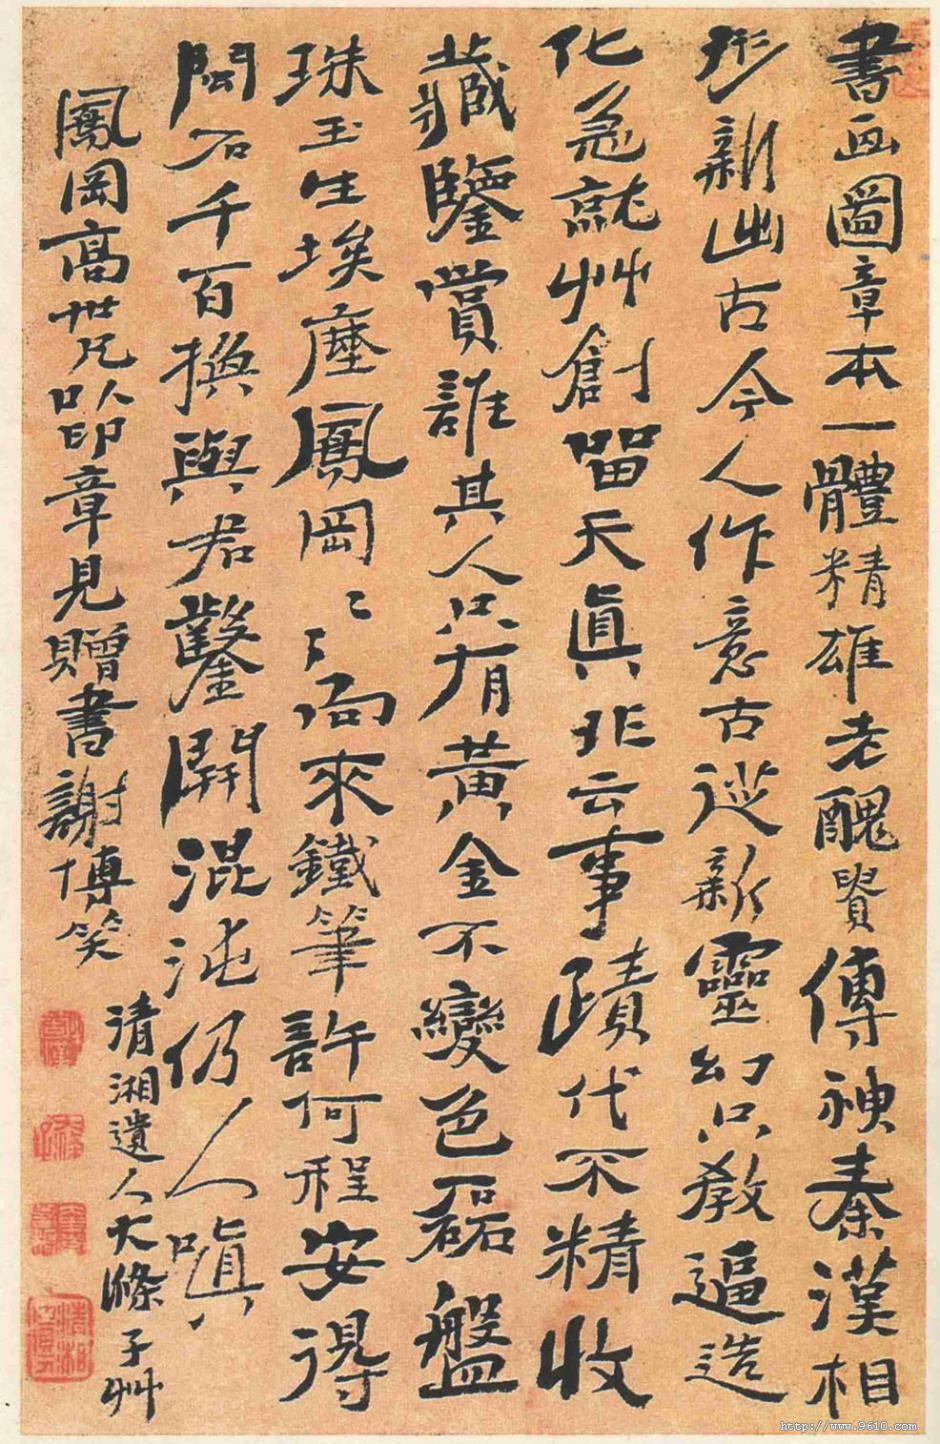 書画圖章本一體精雄老醜貴傳神秦漢相
形新出古今人作意古從新靈幻只教逼造
化急就艸創留天真非云事蹟代不精收
藏鑒賞誰其人只有黃金不變色磊盤
珠玉生埃塵鳳岡〻〻向來鐵筆許何程安得
閩石千百換與君鑿開混沌仍人嗔
鳳岡高世兄以印章見贈書謝博笑
清湘遺人大滌子艸
http://www.9610.com